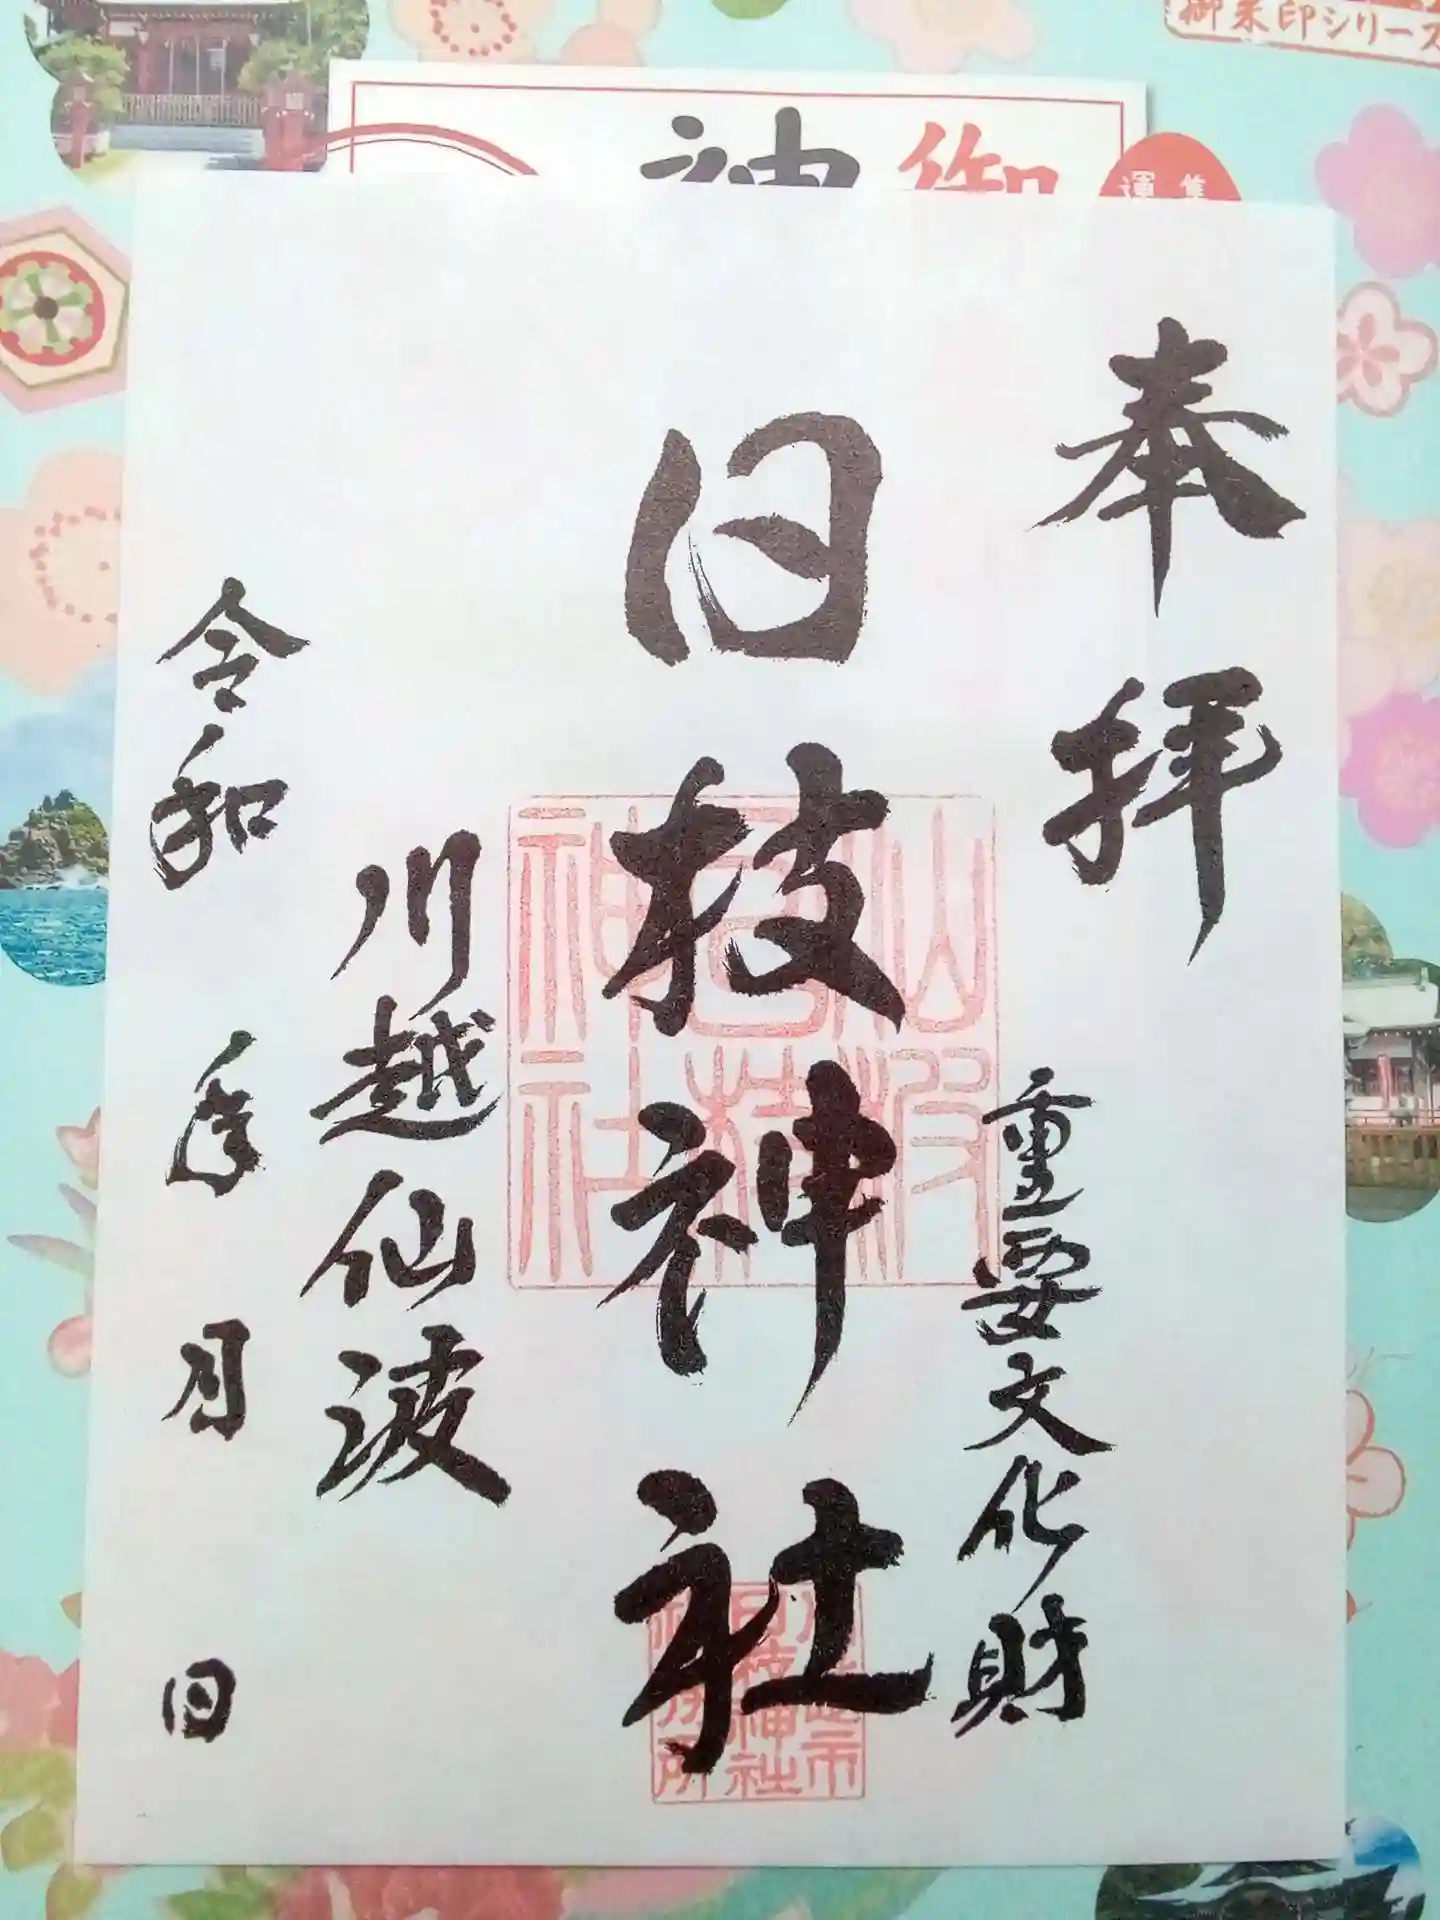 御朱印シリーズ
御
神
運 集
奉拝
重要文化財
日枝神社
仙波
日枝
神社
日枝神社
川越仙波
令和 年 月 日